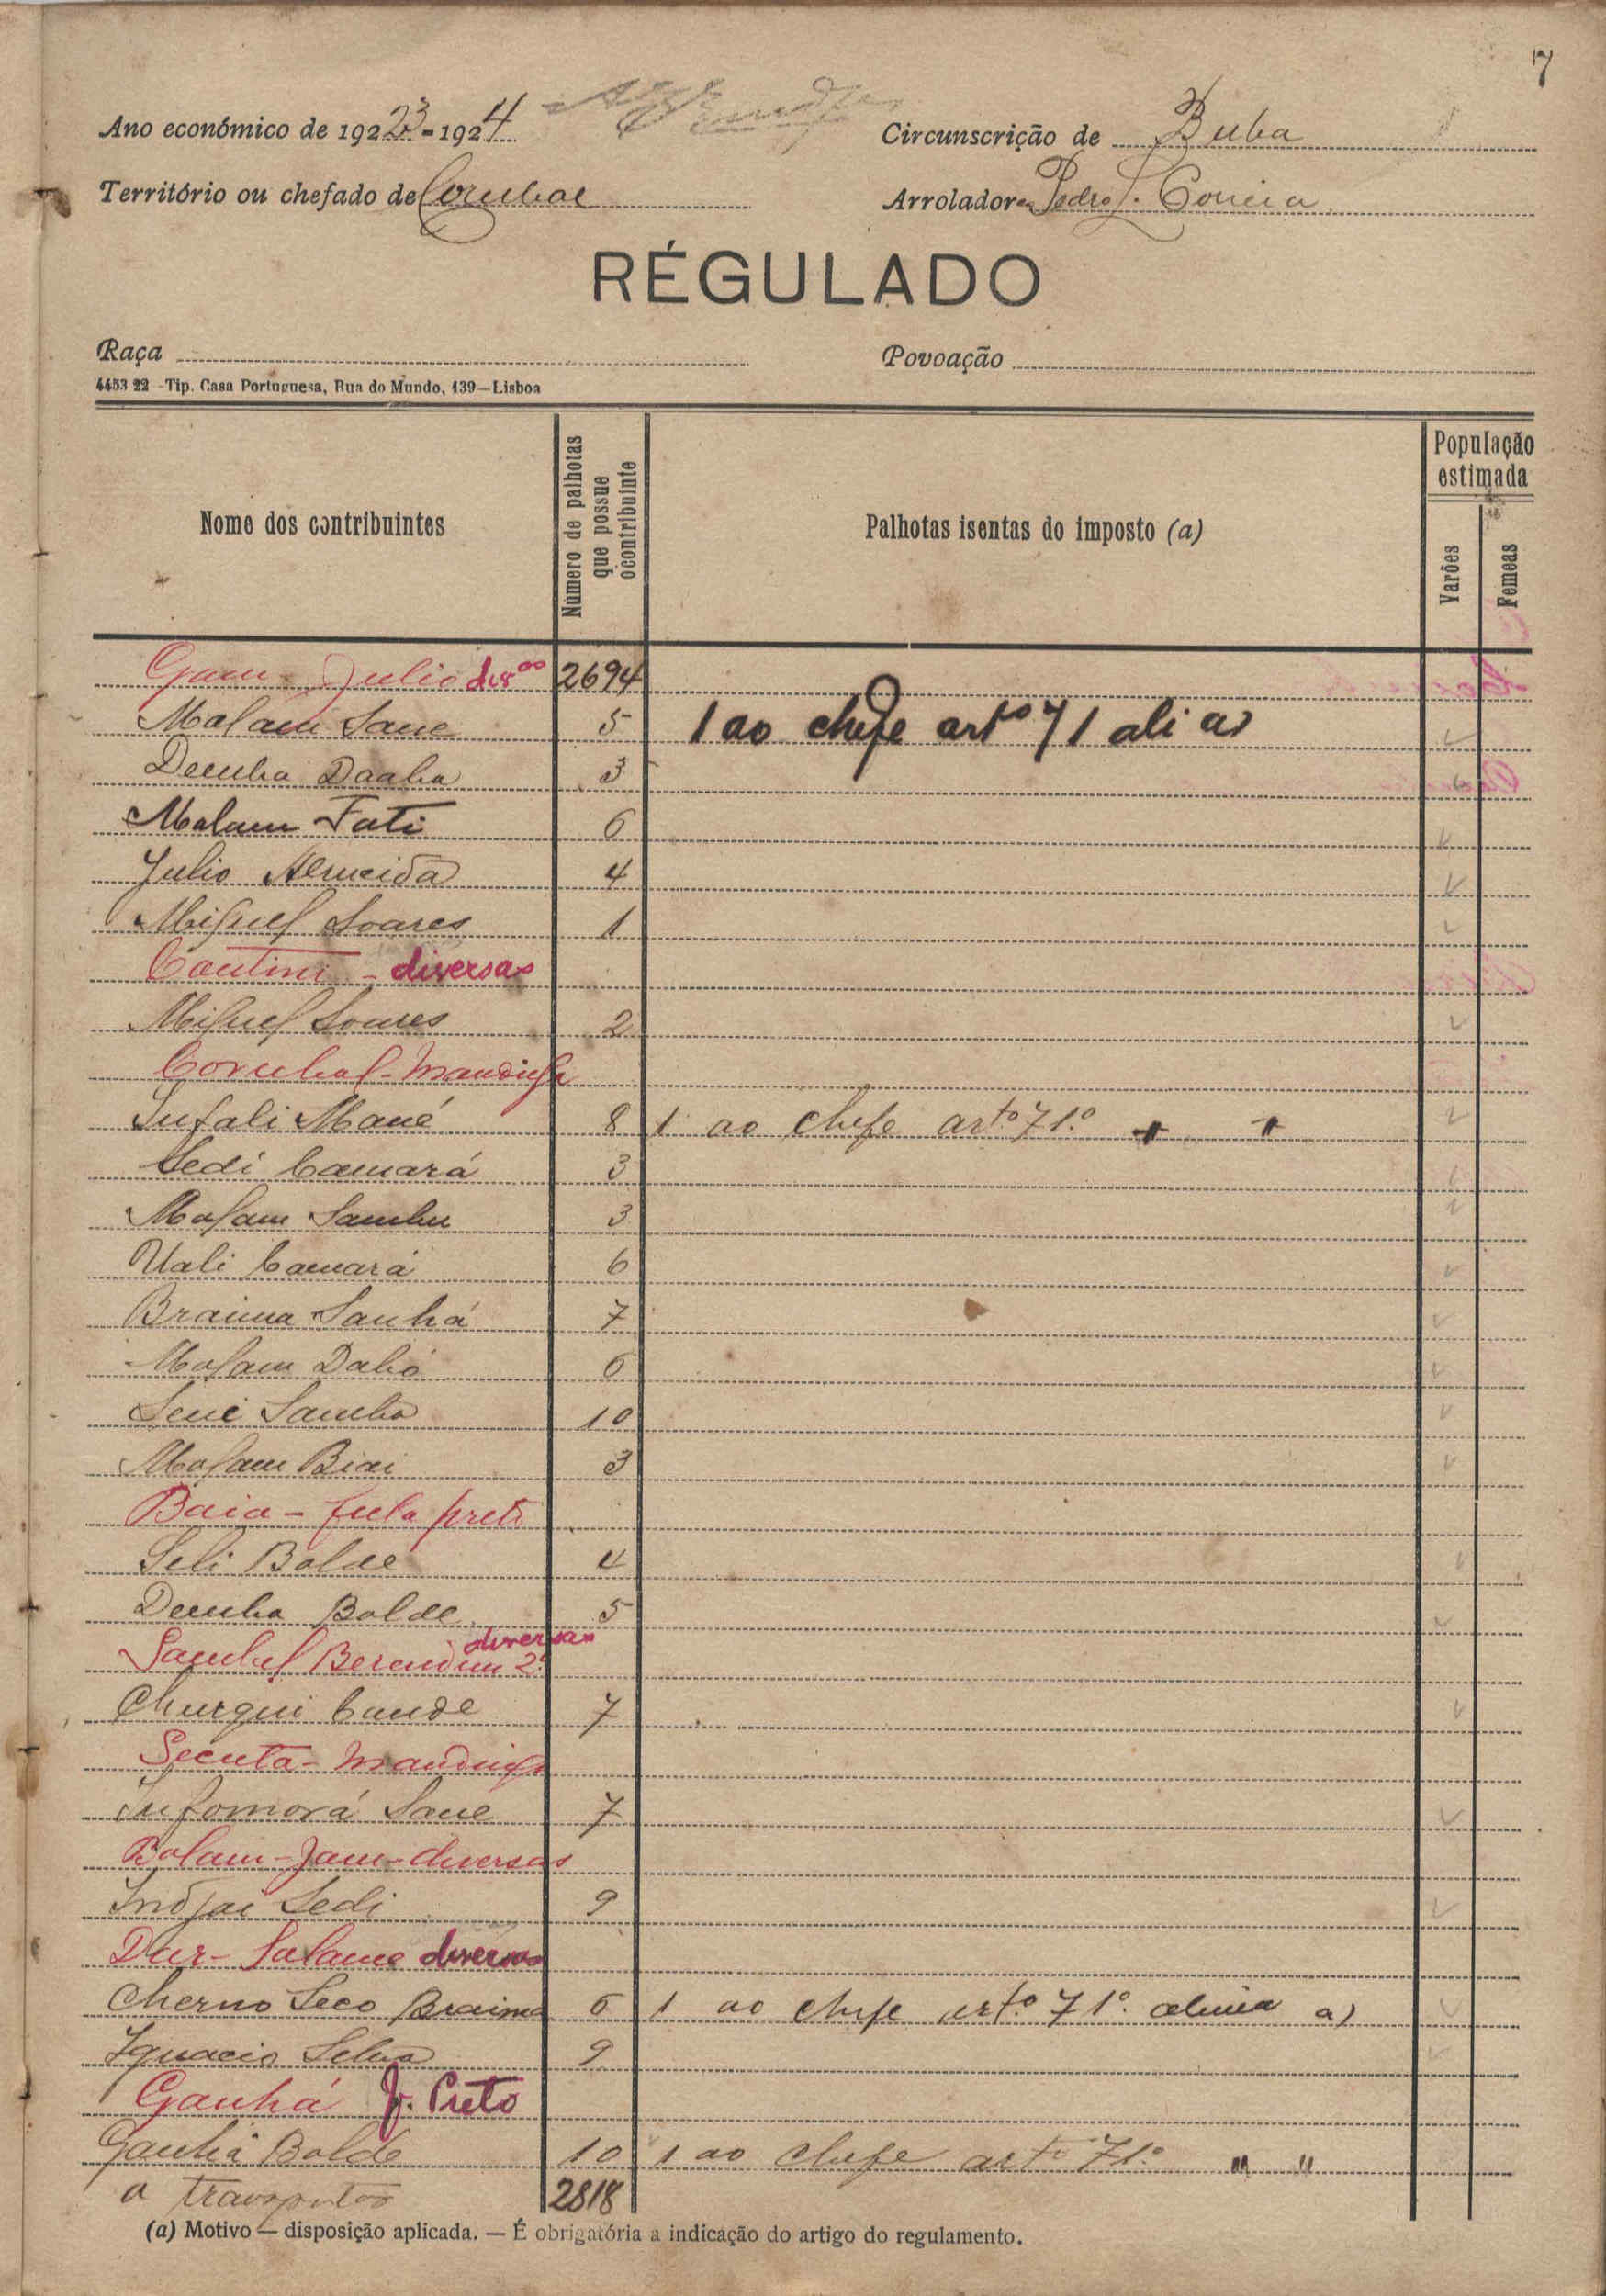 7
Ano económico de 1923-1924
Circunscrição de Buba
Território ou chefado de Corubal
Arrolador Pedro L. Correia
RÉGULADO
Raça
Povoação
4453 22 - Tip. Casa Portuguesa, Rua do Mundo, 139—Lisboa
Nome dos contribuintes
Número de palhotas que possue o contribuinte
Palhotas isentas do imposto (a)
População estimada
Varões
Femeas
Julio 2694
Malam Sane 5 1 ao chefe artº 71 ali a)
Demba Daaba 3
Malam Fati 6
Julio Almeida 4
Miguel Soares 1
Cantini - diversas
Miguel Soares 2
Corubal - Mandinga
Sufali Mané 8 1 ao chefe artº 71.º " "
Sedi Camará 3
Malam Sambu 3
Uali Camará 6
Braima Sanhá 7
Malam Dabó 6
Seni Sambo 10
Malam Biai 3
Baia - fula preto
Seli Balde 4
Demba Balde 5
diversas
Sambel Berendim 2.º
Churqui Cande 7
Secuta - Mandinga
Infomorá Sané 7
Bolam - Jam - diversas
Indjai Sedi 9
Dar - Salame diversas
Cherno Seco Braima 6 1 ao chefe artº 71º. alinea a)
Ignacio Silva 9
Ganhá F. Preto
Ganhá Balde 10 1 ao chefe artº 71.º " "
a transportar 2818
(a) Motivo — disposição aplicada. — É obrigatória a indicação do artigo do regulamento.